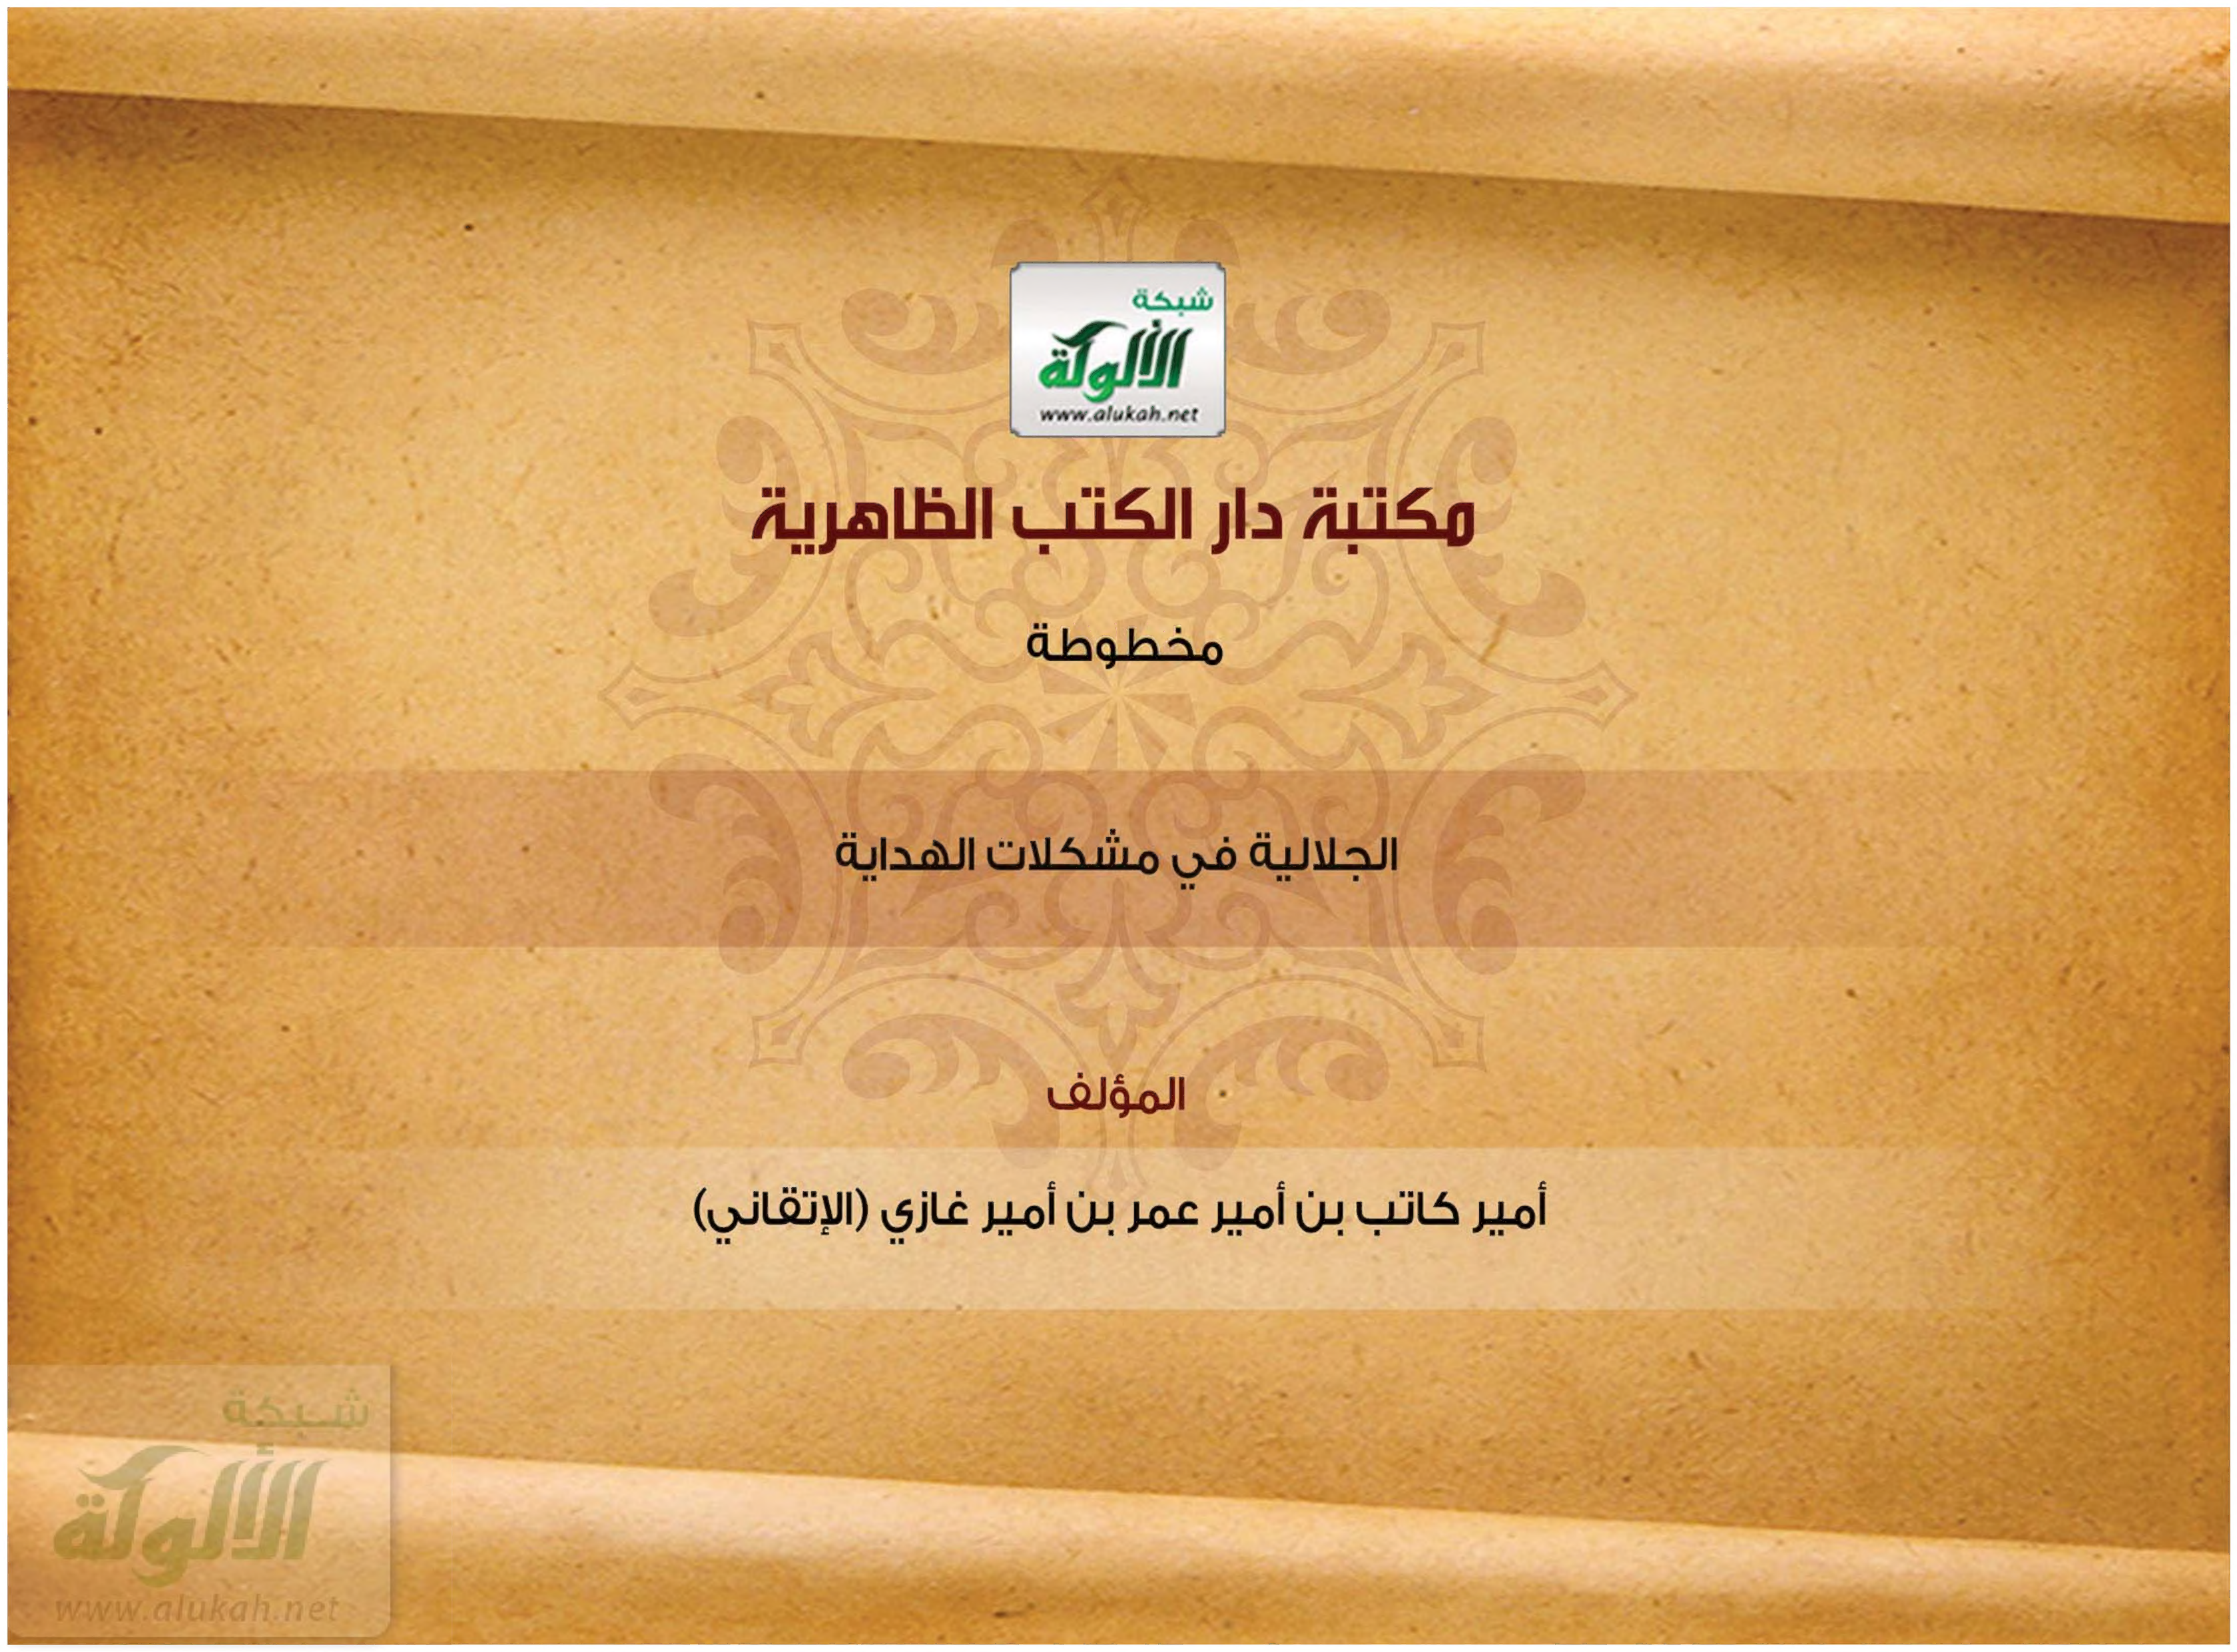 شبكة
الألوكة
www.alukah.net
مكتبة دار الكتب الظاهرية
مخطوطة
الجلالية في مشكلات الهداية
المؤلف
أمير كاتب بن أمير عمر بن أمير غازي (الإتقاني)
شبكة
الألوكة
www.alukah.net